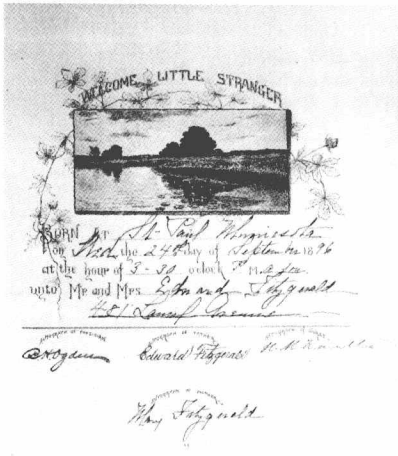 WELCOME LITTLE STRANGER
BORN AT St. Paul Minnesota
on Wed. the 24th day of September 1896
at the hour of 3-30 o'clock P. M. a
unto Mr and Mrs Edward Fitzgerald
481 Laurel Avenue
Edward Fitzgerald
Mary Fitzgerald